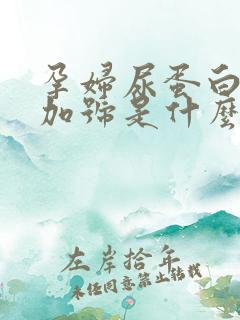 孕婦尿蛋白
加號是什麼
左岸拾年
未经同意禁止转载